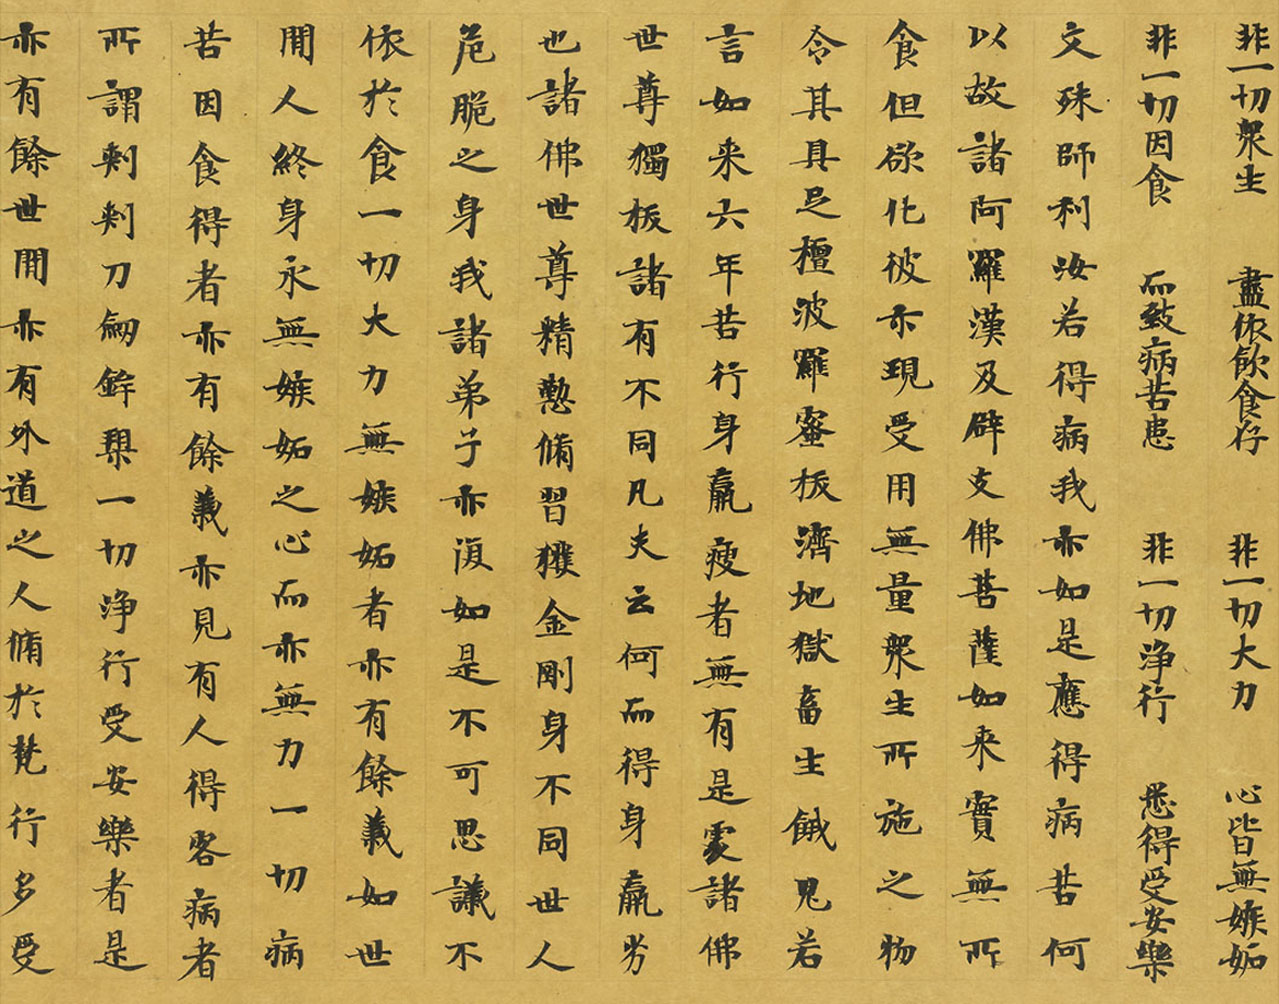 非一切衆生 盡依飲食存 非一切大力 心皆無嫉妬
非一切因食 而致病苦患 非一切淨行 悉得受安樂
文殊師利汝若得病我亦如是應得病苦何
以故諸阿羅漢及辟支佛菩薩如来實無所
食但欲化彼亦現受用無量衆生所施之物
令其具足檀波羅蜜拔濟地獄畜生餓鬼若
言如来六年苦行身羸瘦者無有是處諸佛
世尊獨拔諸有不同凡夫云何而得身羸劣
也諸佛世尊精懃脩習獲金剛身不同世人
危脆之身我諸弟子亦復如是不可思議不
依於食一切大力無嫉妬者亦有餘義如世
閒人終身永無嫉妬之心而亦無力一切病
苦因食得者亦有餘義亦見有人得客病者
所謂刺刺刀劒鉾槊一切淨行受安樂者是
亦有餘世閒亦有外道之人脩於梵行多受